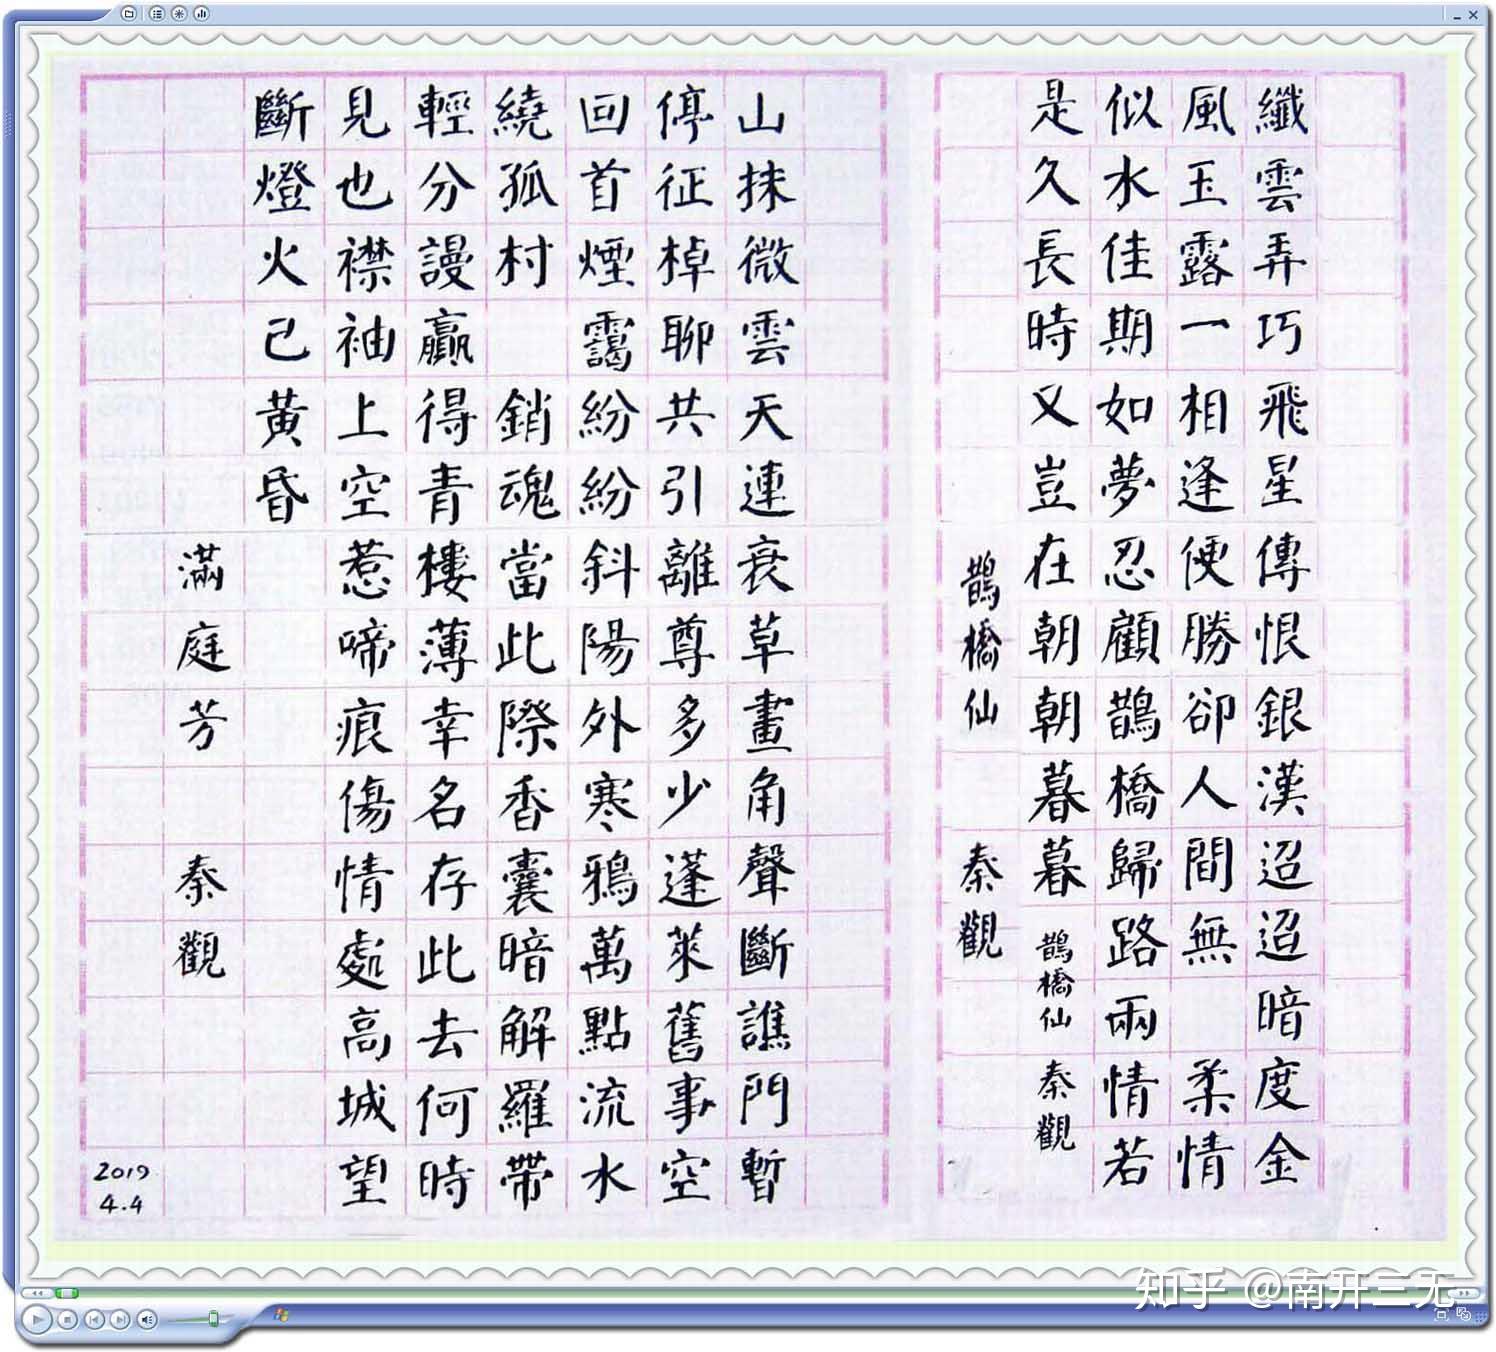 纖雲弄巧飛星傳恨銀漢迢迢暗度金
風玉露一相逢便勝卻人間無 柔情
似水佳期如夢忍顧鵲橋歸路兩情若
是久長時又豈在朝朝暮暮 鵲橋仙 秦觀
鵲橋仙 秦觀
山抹微雲天連衰草畫角聲斷譙門暫
停征棹聊共引離尊多少蓬萊舊事空
回首煙靄紛紛斜陽外寒鴉萬點流水
繞孤村 銷魂當此際香囊暗解羅帶
輕分謾贏得青樓薄幸名存此去何時
見也襟袖上空惹啼痕傷情處高城望
斷燈火己黃昏
滿庭芳 秦觀
2019
4.4
知乎 @南开三无